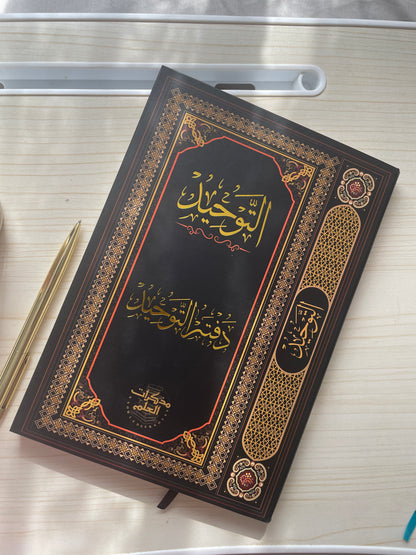 التَّوْحِيْد
دَفْتَر التَّوْحِيْد
مذكرات
العلم
التَّوْحِيْد